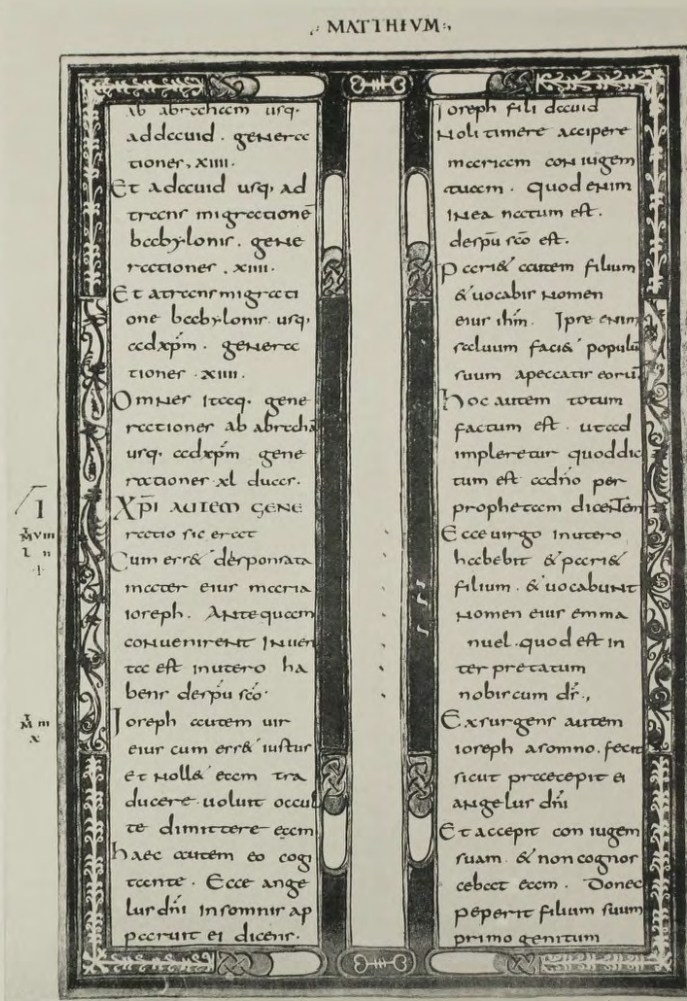 MATTHEVM
ab abraham usq·
addauid · genera
tiones · xiiii ·
Et adauid usq· ad
trans migrationē
babylonis · gene
rationes · xiiii ·
Et atransmigrati
one babylonis · usq·
adxp̄m · genera
tiones · xiiii ·
Omnes itaq· gene
rationes ab abrahā
usq· adxp̄m gene
rationes xl duas ·
XP̄I AUTEM GENE
ratio sic erat
Cum ess& desponsata
mater eius maria
ioseph · Antequam
convenirent inven
ta est inutero ha
bens despū sc̄o ·
Ioseph autem vir
eius cum ess& iustus
et noll& eam tra
ducere · uoluit occul
te dimittere eam
haec autem eo cogi
tante · Ecce ange
lus dn̄i insomnis ap
paruit ei dicens ·
ioseph fili dauid
Noli timere accipere
mariam coniugem
tuam · quod enim
inea natum est ·
despū sc̄o est ·
Pari& autem filium
& uocabis nomen
eius ihm̄ · Ipse enim
saluum faci& populū
suum apeccatis eorū
hoc autem totum
factum est · utad
impleretur quoddic
tum est adn̄o per
prophetam dicentem
Ecce virgo inutero
habebit & pari&
filium · & uocabunt
nomen eius emma
nuel · quod est in
ter pretatum
nobiscum d̄s ·,
Exsurgens autem
ioseph asomno · fecit
sicut praecepit ei
angelus dn̄i
Et accepit coniugem
suam · & non cognos
cebat eam · Donec
peperit filium suum
primo genitum
I
M viii
l ii
M iii
x